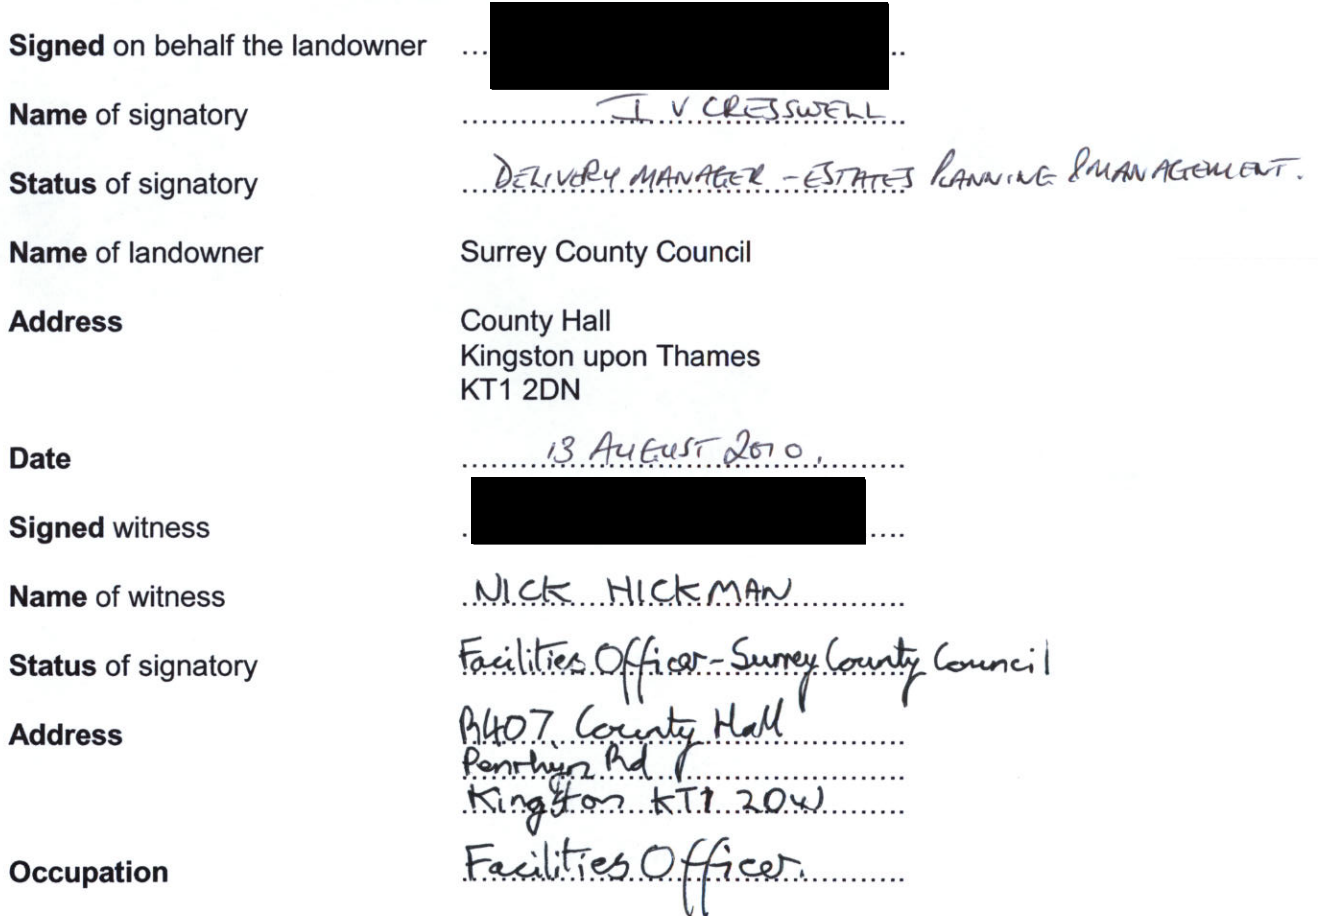 Signed on behalf the landowner ... ..
Name of signatory I V CRESSWELL
Status of signatory DELIVERY MANAGER - ESTATES PLANNING & MANAGEMENT.
Name of landowner Surrey County Council
Address County Hall
Kingston upon Thames
KT1 2DN
Date 13 AUGUST 2010.
Signed witness . ....
Name of witness NICK HICKMAN
Status of signatory Facilities Officer - Surrey County Council
Address R407 County Hall
Penrhyn Rd
Kingston KT1 2DW
Occupation Facilities Officer.